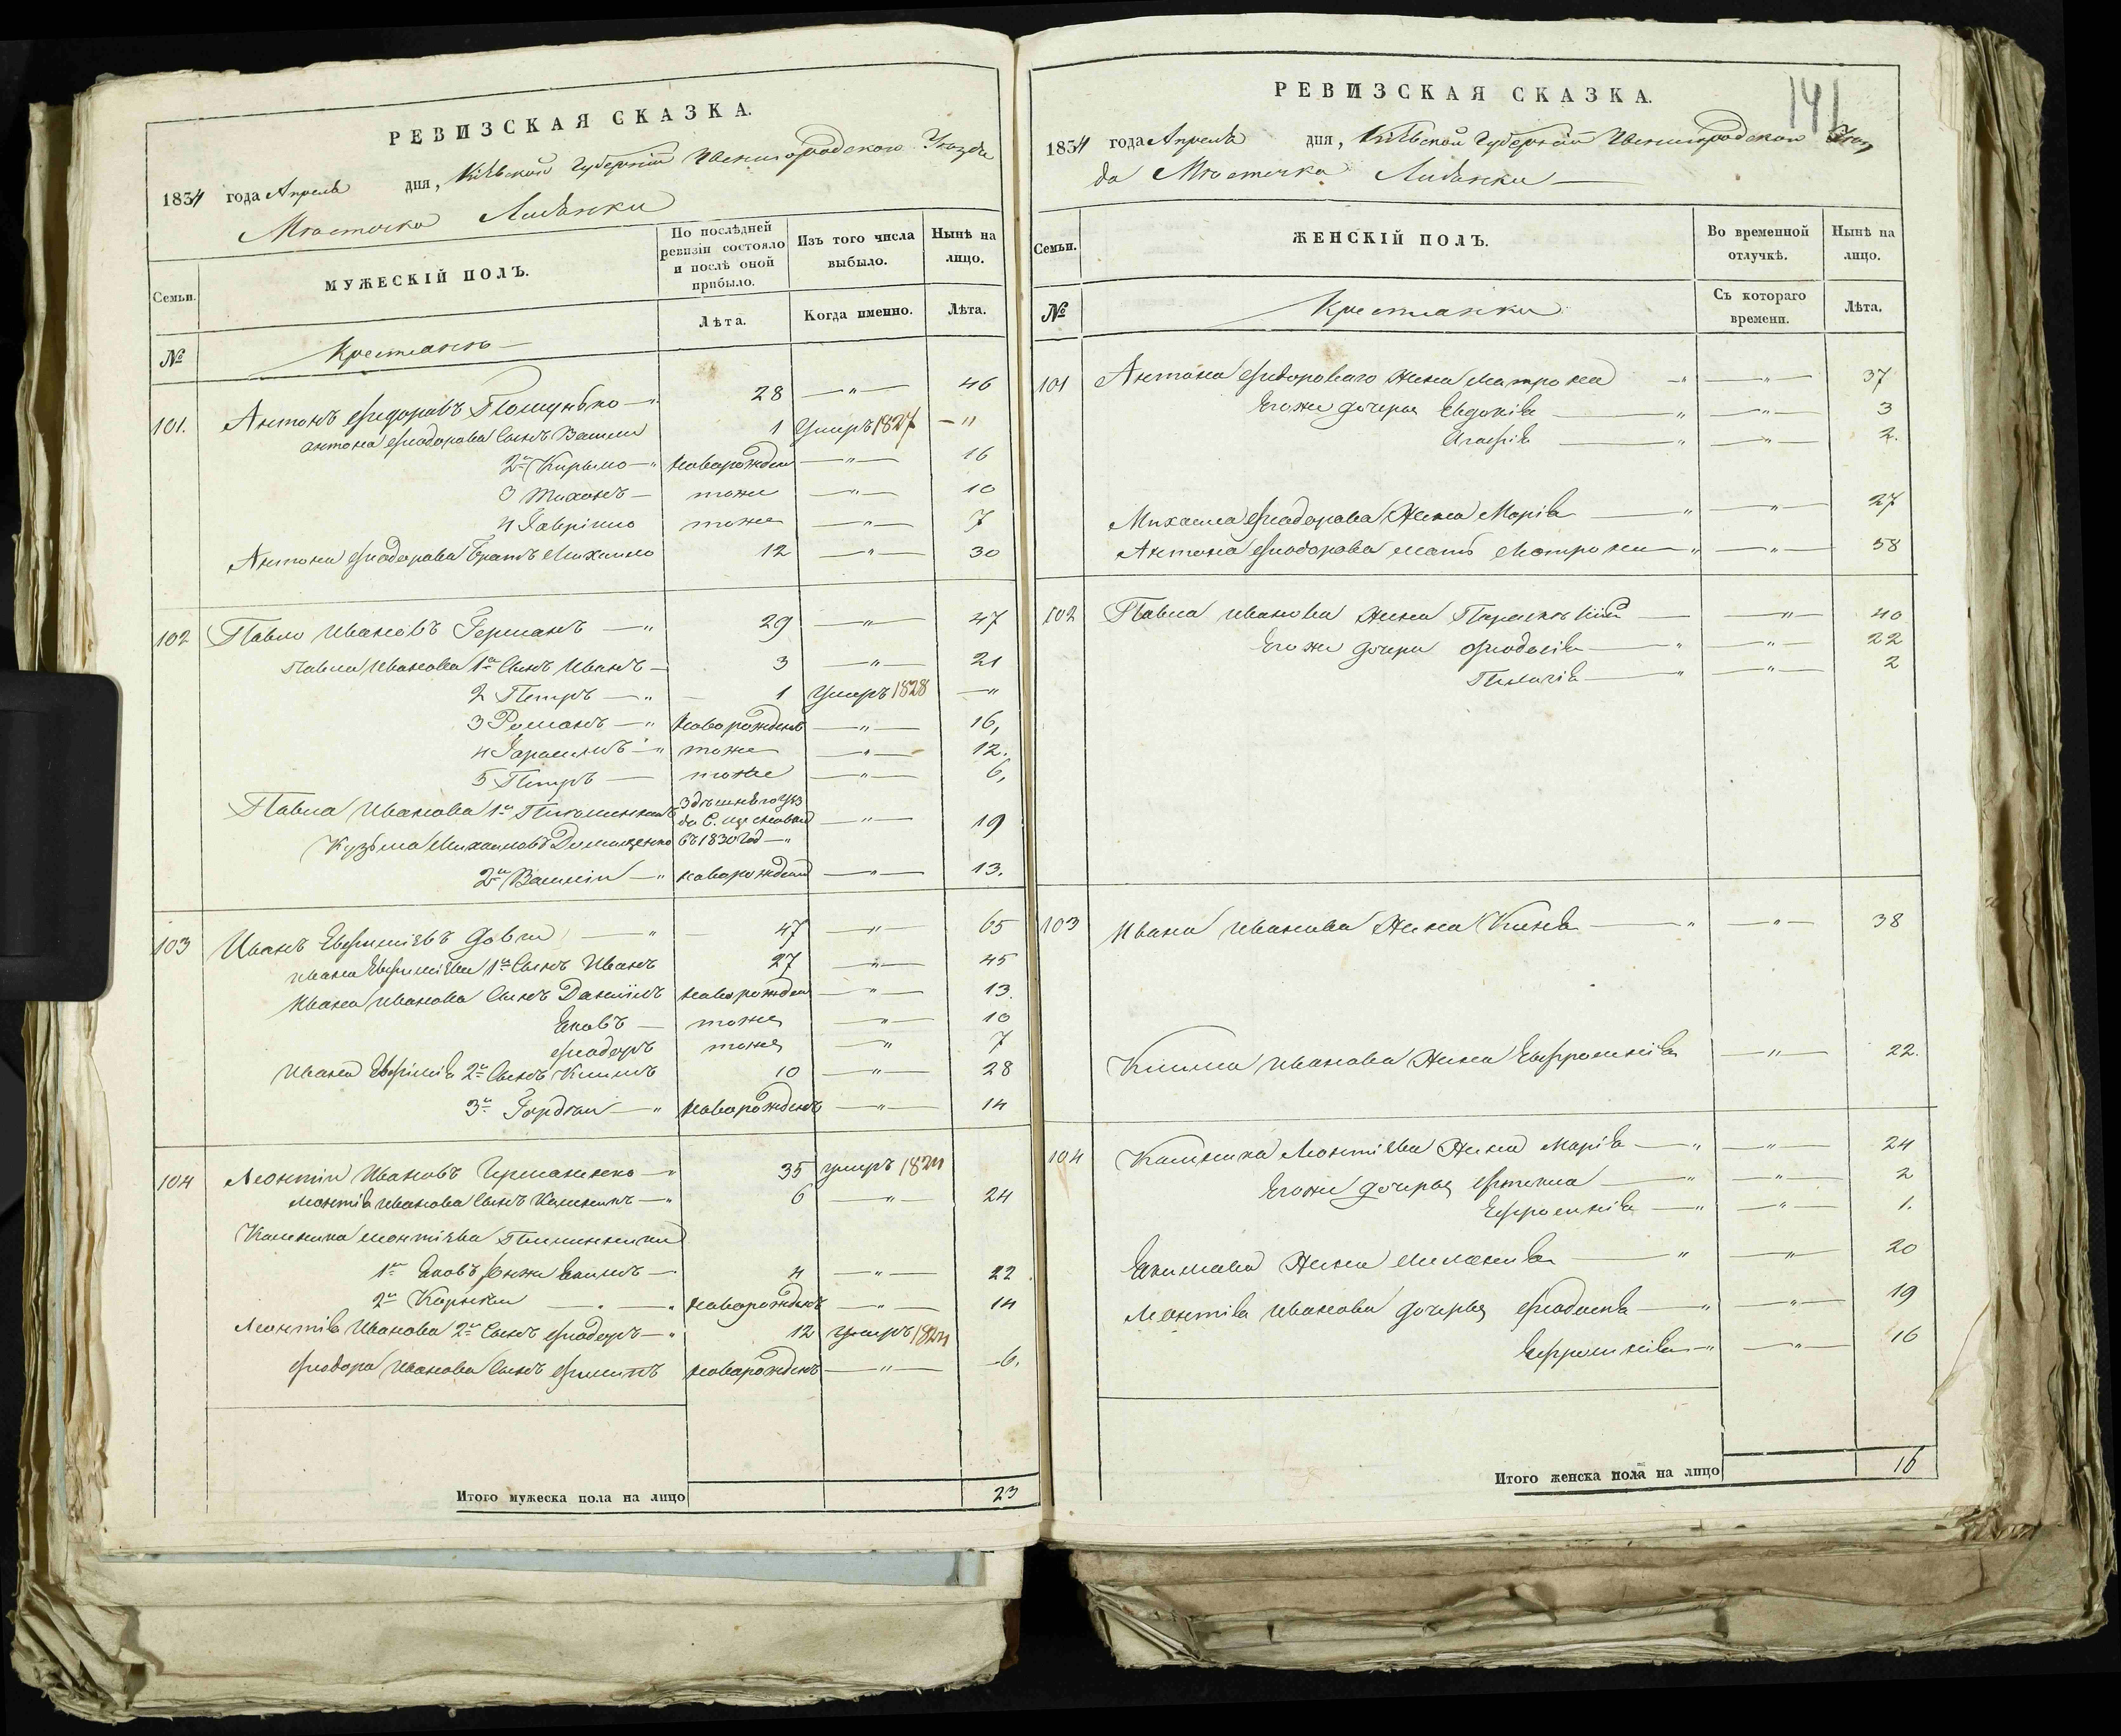 РЕВИЗСКАЯ СКАЗКА.
1834 года Апреля дня, Кіевской Губерніи Звенигородского Уѣзда
Мѣстечка Лисянки
Семьи.
МУЖЕСКІЙ ПОЛЪ.
По послѣдней ревизіи состояло и послѣ оной прибыло.
Изъ того числа выбыло.
Нынѣ на лицо.
Лѣта.
Когда именно.
Лѣта.
№
Крестьянъ
101. Антонъ Фидоровъ 28 —"— 46
Антона Фиодорова Сынъ Васили 1 Умеръ 1827 —"
2й Кирыло —" новорожден —"— 16
3 Тихонъ — тоже —"— 10
4 Гаврiило тоже —"— 7
Антона Фиодорова Братъ Михайло 12 —"— 30
102 Павло Ивановъ Германъ —" 29 —"— 47
Павла Иванова 1й Сынъ Иванъ — 3 —"— 21
2 Петръ —" — 1 Умеръ 1828 —"
3 Романъ —" новорожденъ —"— 16,
4 Гарасимъ —" тоже —"— 12.
5 Петръ — тоже —"— 6,
Павла Иванова 1й
Здѣшнего Уѣз
да С. —"— 19
Кузьма Михаиловъ въ 1830 год —"
2й Василій —" новорожден —"— 13.
103 Иванъ Евфиміевъ —" — 47 —"— 65
Ивана Евфиміева 1й Сынъ Иванъ 27 —"— 45
Ивана Иванова Сынъ Даніилъ новорожден —"— 13
Яковъ — тоже —"— 10
Фиодоръ тоже —" 7
Ивана Евфиміева 2й Сынъ Климъ 10 —"— 28
3й Гордѣй —" новорожденъ —"— 14
104 Леонтій Ивановъ —" 35 умеръ 1824
Леонтія Иванова Сынъ Калиникъ —" 6 —"— 24
Калиника Леонтіева
1й Яковъ онже Екимъ — 4 —"— 22
2й Корнѣй —"—" новорожденъ —"— 14
Леонтія Иванова 2й Сынъ Фиодоръ —" 12 Умеръ 1824
Фиодора Иванова Сынъ Филипъ новорожденъ —"— 6.
Итого мужеска пола на лицо 23
141
РЕВИЗСКАЯ СКАЗКА.
1834 года Апреля дня, Кіевской Губерніи Звенигородского Уѣз
да Мѣстечка Лисянки —
Семьи.
ЖЕНСКІЙ ПОЛЪ.
Во временной отлучкѣ.
Нынѣ на лицо.
№
Крестьянки
Съ котораго времени.
Лѣта.
101 Антона Фидорового Жена Матрона —" —"— 37
Егоже дочеръя Евдокія —" —"— 3
Агафія —" —"— 2.
Михаила Фиодорова Жена Марія —" —"— 27
Антона Фиодорова мать Матрона —" —"— 58
102 Павла Иванова Жена — —"— 40
Егоже дочери Фиодосія —" —"— 22
Пилагія —" —"— 2
103 Ивана Иванова Жена —" —"— 38
Клима Иванова Жена Евфросинія —"— 22.
104 Калиника Леонтіева Жена Марія —" —"— 24
Егоже дочерья —" —"— 2
Ефросинія —" —"— 1.
Екимова Жена Миланія —" —"— 20
Леонтія Иванова дочерья Фиодосія —" —"— 19
Ефросинія —" —"— 16
Итого женска пола на лицо 16